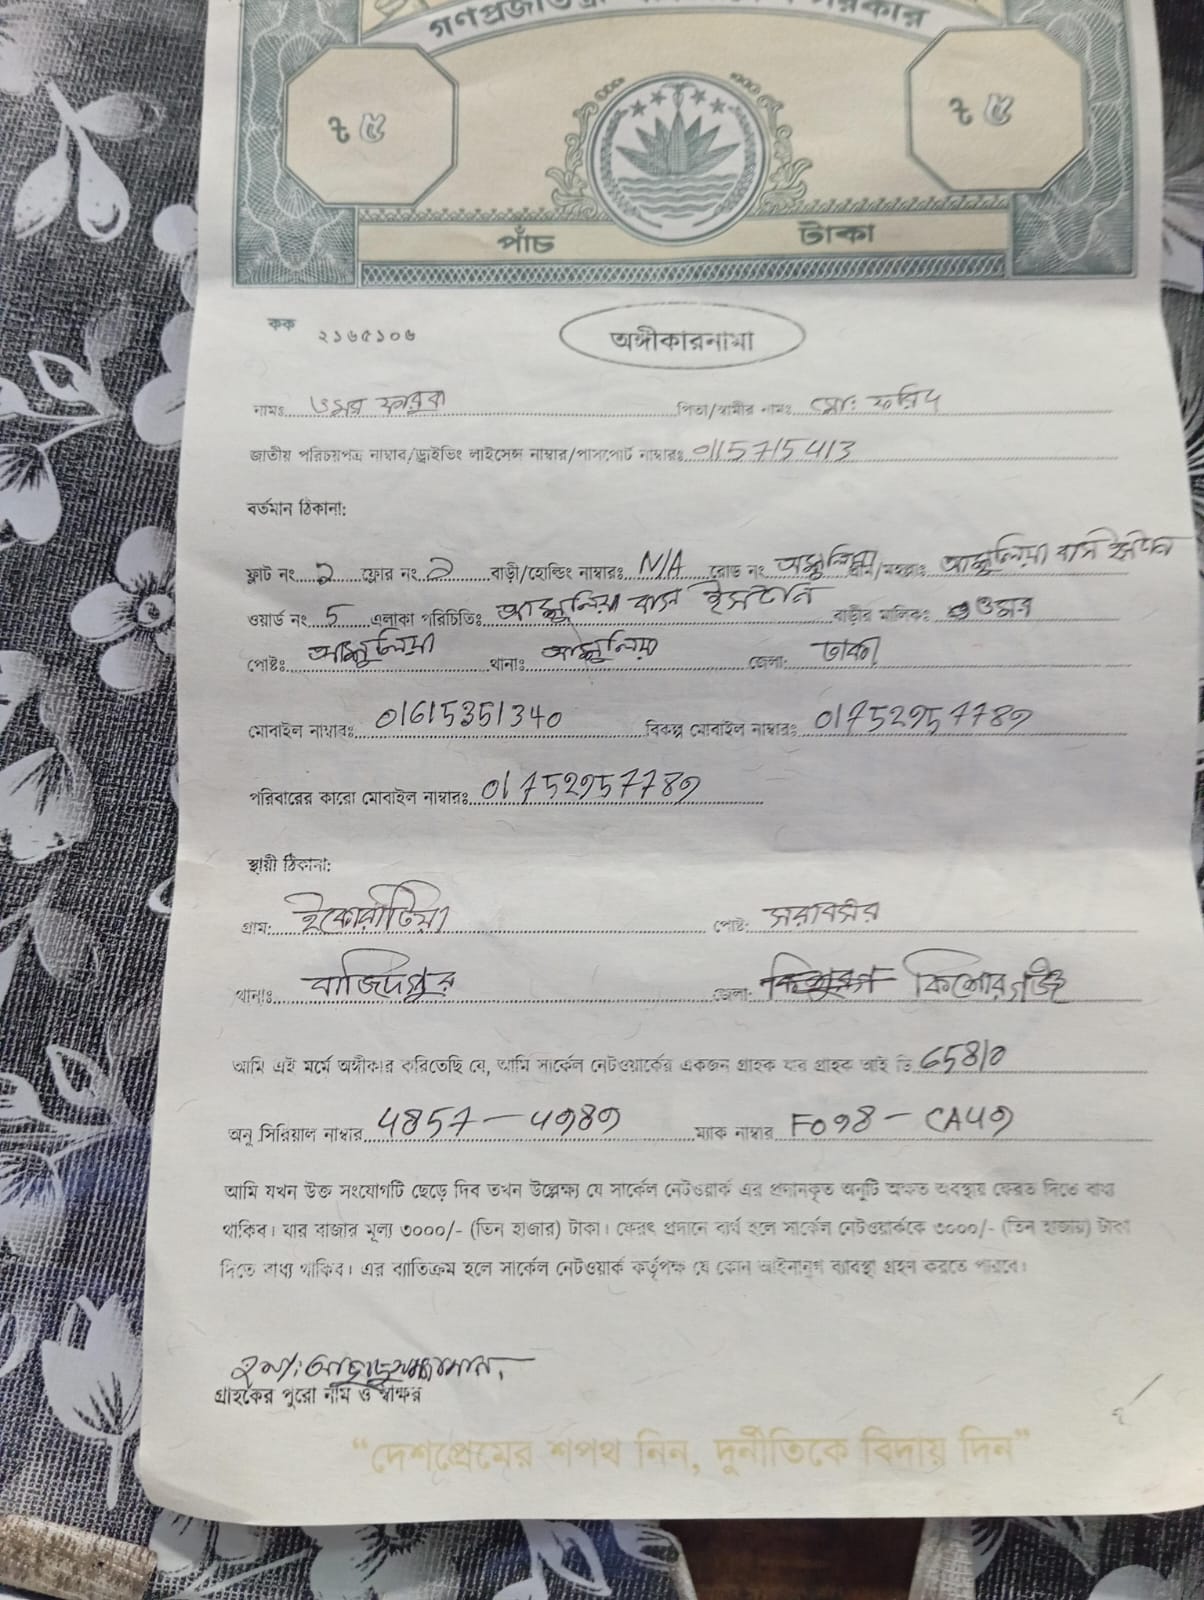 ৳ ৫ ৳ ৫
পাঁচ টাকা
কক ২১৬৫১০৬
অঙ্গীকারনামা
নামঃ ওমর ফারুক পিতা/স্বামীর নামঃ মো: ফরিদ
জাতীয় পরিচয়পত্র নাম্বার/ড্রাইভিং লাইসেন্স নাম্বার/পাসপোর্ট নাম্বারঃ
বর্তমান ঠিকানা:
ফ্লাট নং ২ ফ্লোর নং ২ বাড়ী/হোল্ডিং নাম্বারঃ N/A রোড নং আশুলিয়া গ্রাম/মহল্লাঃ আশুলিয়া বাস
ওয়ার্ড নং 5 এলাকা পরিচিতিঃ আশুলিয়া বাস বাড়ীর মালিকঃ ওমর
পোষ্টঃ আশুলিয়া থানাঃ আশুলিয়া জেলা: ঢাকা
মোবাইল নাম্বারঃ 01615351340 বিকল্প মোবাইল নাম্বারঃ 01752957789
পরিবারের কারো মোবাইল নাম্বারঃ
স্থায়ী ঠিকানা:
গ্রাম: পোষ্ট:
থানাঃ বাজিতপুর জেলা: কিশোরগঞ্জ
আমি এই মর্মে অঙ্গীকার করিতেছি যে, আমি সার্কেল নেটওয়ার্কের একজন গ্রাহক যার গ্রাহক আই ডি 65810
অনু সিরিয়াল নাম্বার 4857 - ম্যাক নাম্বার
আমি যখন উক্ত সংযোগটি ছেড়ে দিব তখন উল্লেক্ষ্য যে সার্কেল নেটওয়ার্ক এর প্রদানকৃত অনুটি অক্ষত অবস্থায় ফেরত দিতে বাধ্য
থাকিব। যার বাজার মূল্য ৩০০০/- (তিন হাজার) টাকা। ফেরৎ প্রদানে ব্যর্থ হলে সার্কেল নেটওয়ার্ককে ৩০০০/- (তিন হাজার) টাকা
দিতে বাধ্য থাকিব। এর ব্যাতিক্রম হলে সার্কেল নেটওয়ার্ক কর্তৃপক্ষ যে কোন আইনানুগ ব্যাবস্থা গ্রহন করতে পারবে।
গ্রাহকের পুরো নাম ও স্বাক্ষর
“দেশপ্রেমের শপথ নিন, দুর্নীতিকে বিদায় দিন”